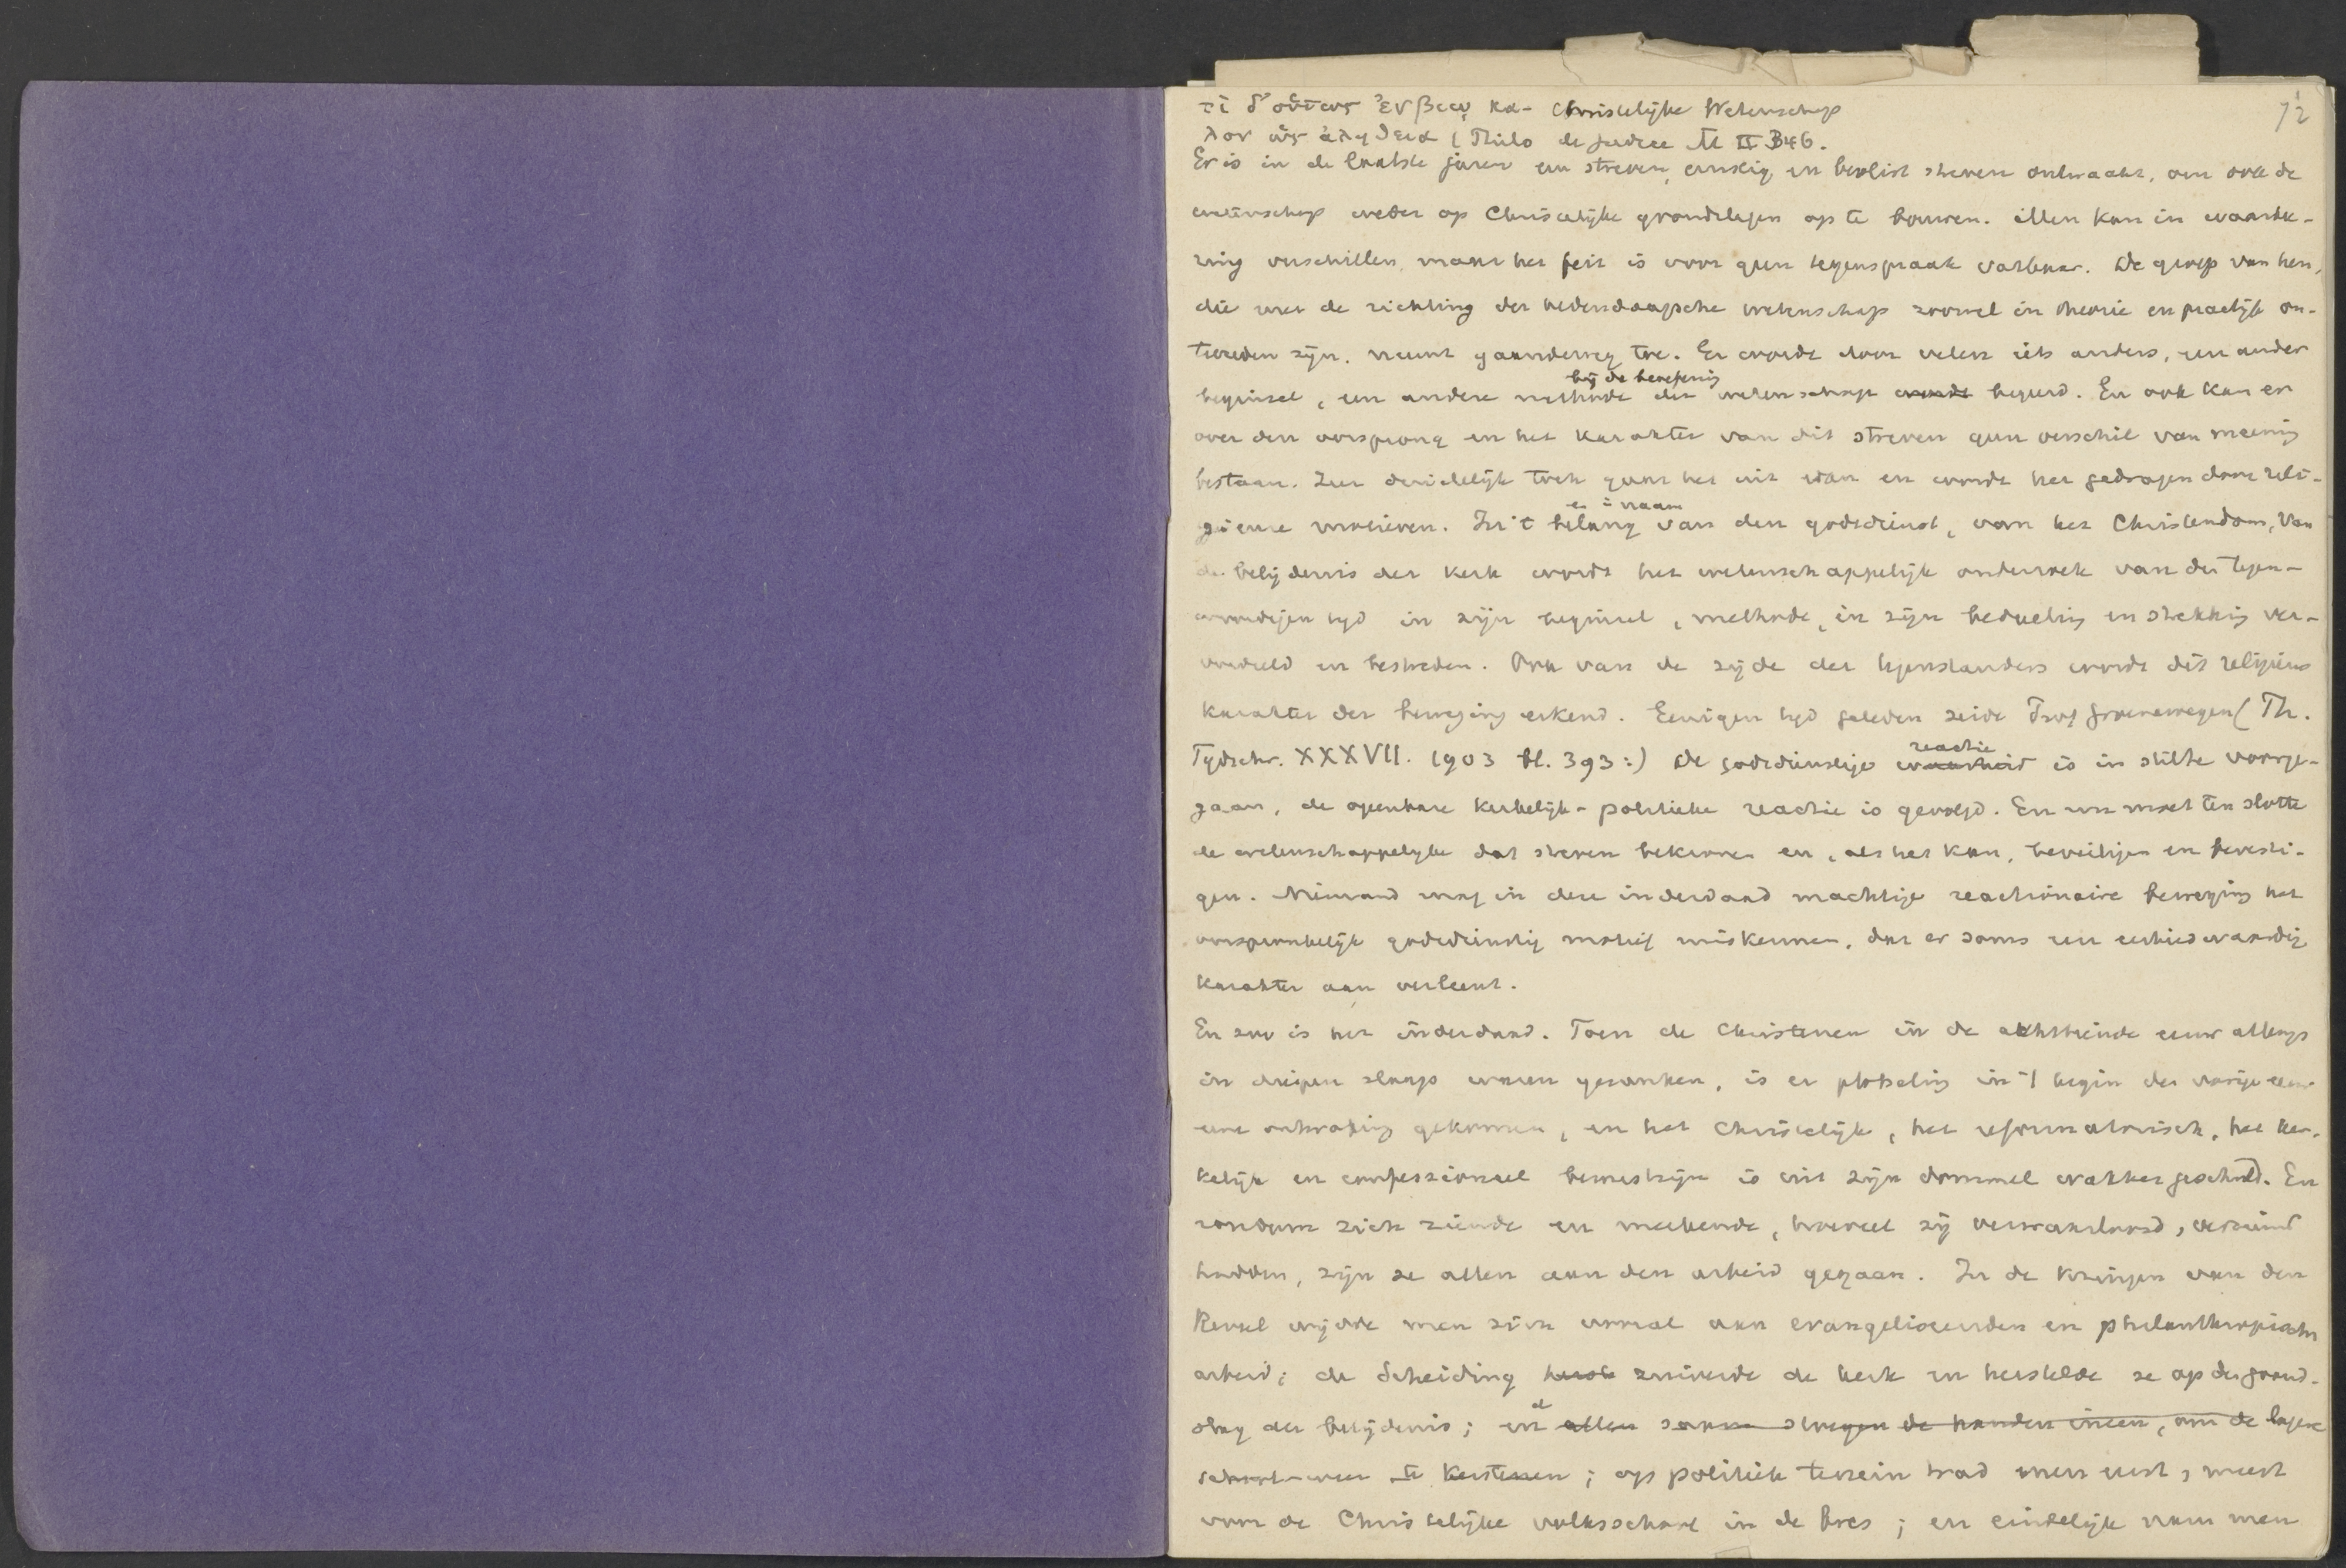 τί δ' οὕτως ἐν βίῳ κα- Christelijke Wetenschap
λον ὡς ἀληθεια (Philo de judice M II 346.
72
Er is in de laatste jaren een streven, ernstig en beslist streven ontwaakt, om ook de
wetenschap weder op Christelijke grondslagen op te bouwen. Men kan in waarde-
ring verschillen, maar het feit is voor geen tegenspraak vatbaar. De groep van hen,
die met de richting der hedendaagsche wetenschap zoowel in theorie en practijk on-
tevreden zijn, neemt gaandeweg toe. Er wordt door velen iets anders, een ander
bij de beoefening
beginsel, een andere methode der wetenschap wordt begeerd. En ook kan er
over den oorsprong en het karakter van dit streven geen verschil van meening
bestaan. Zeer duidelijk toch gaat het uit van en wordt het gedragen door reli-
en in naam
gieuse motieven. In 't belang van den godsdienst, van het Christendom, van
de belijdenis der kerk wordt het wetenschappelijk onderzoek van den tegen-
woordigen tijd in zijn beginsel, methode, in zijn bedoeling en strekking ver-
oordeeld en bestreden. Ook van de zijde der tegenstanders wordt dit religieus
karakter der beweging erkend. Eenigen tijd geleden zeide Prof Groenewegen (Th.
reactie
Tydschr. XXXVII. 1903 bl. 393:) De godsdienstige waarheid is in stilte voorge-
gaan, de openbare kerkelijk-politieke reactie is gevolgd. En nu moet ten slotte
de wetenschappelyke dat streven bekronen en, als het kan, beveiligen en bevesti-
gen. Niemand mag in deze inderdaad machtige reactionaire beweging het
oorspronkelijk godsdienstig motief miskennen, dat er soms een eerbiedwaardig
karakter aan verleent.
En zoo is het inderdaad. Toen de Christenen in de achttiende eeuw allengs
in diepen slaap waren gezonken, is er plotseling in 't begin der vorige eeuw
eene ontwaking gekomen, en het Christelijk, het reformatorisch, het ker-
kelijk en confessioneel bewustzijn is uit zijn dommel wakker geschud. En
rondom zich ziende en merkende, hoeveel zij verwaarloosd, verzuimd
hadden, zijn ze allen aan den arbeid gegaan. In de kringen van den
Reveil wijdde men zich vooral aan evangeliseerenden en philanthropischen
arbeid; de Scheiding zuiverde de kerk en herstelde ze op den grond-
slag der belijdenis; en allen samen sloegen de handen ineen, om de lagere
school weer te kerstenen; op politiek terrein trad men eerst, meest
voor de Christelijke volksschool in de bres; en eindelijk nam men